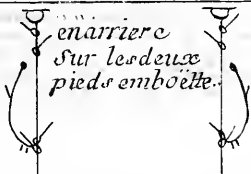 enarriere
sur lesdeux
pieds emboëtte.